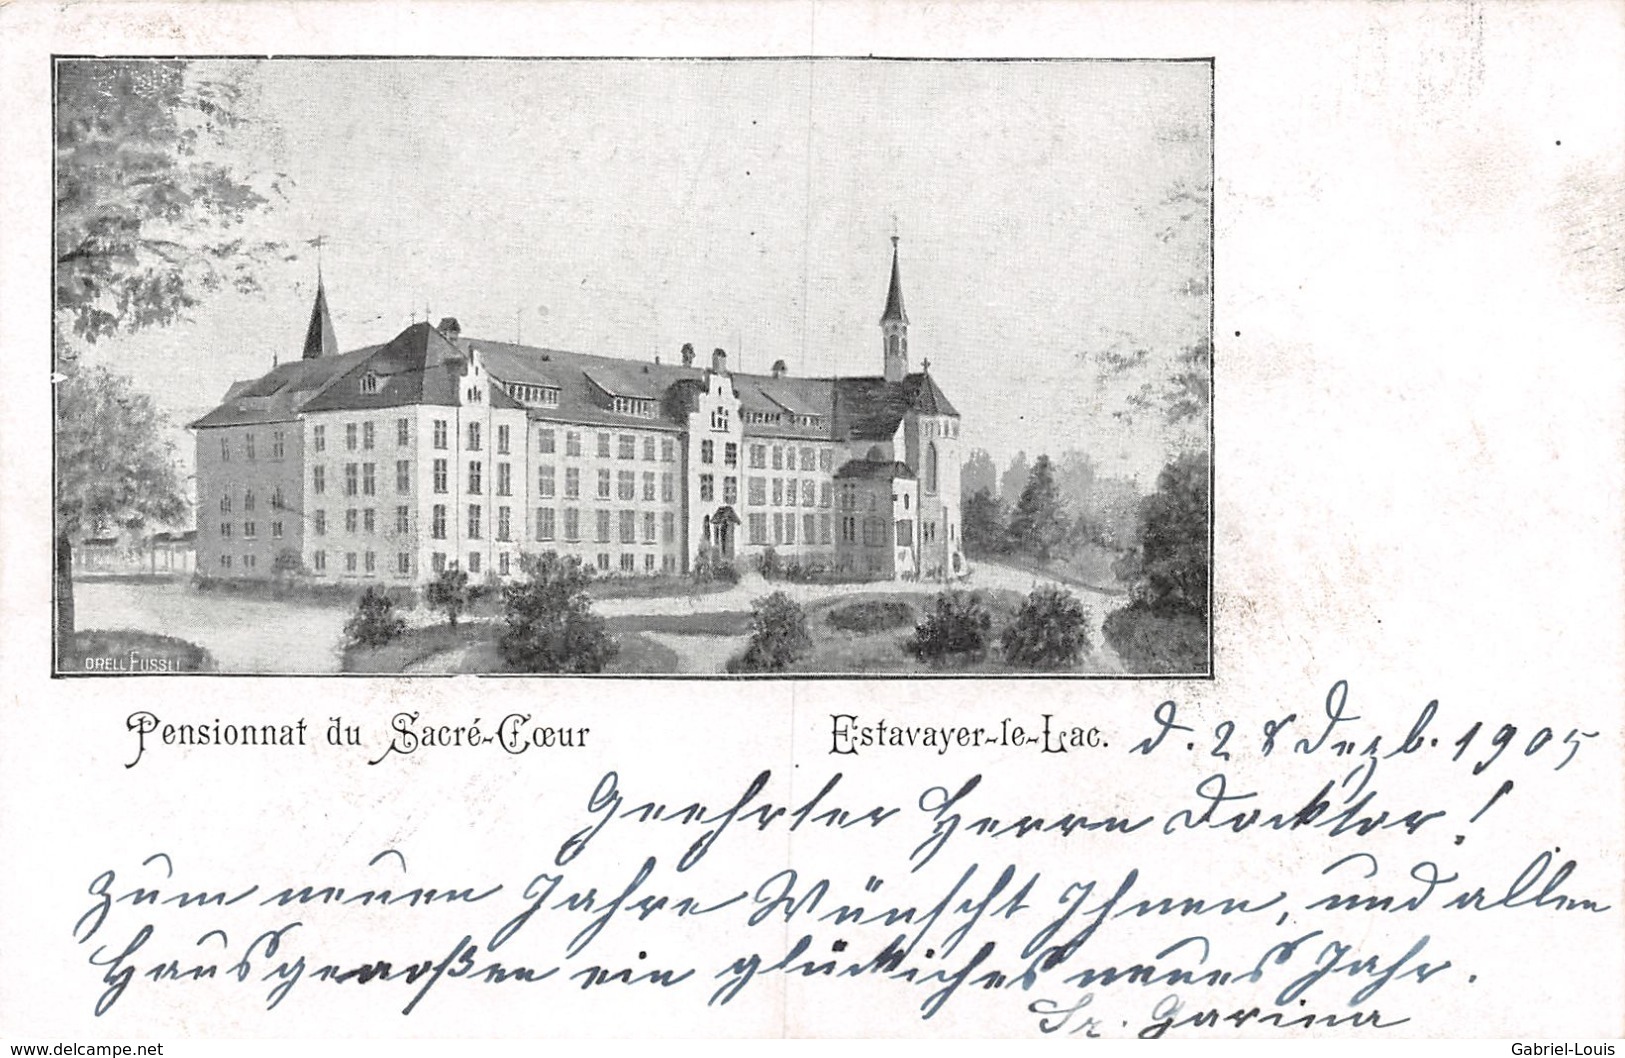 ORELL FÜSSLI
Pensionnat du Sacré-Cœur
Estavayer-le-Lac. d. 28 Dezb. 1905
Geehrter Herrn Docktor!
Zum neuen Jahre Wünscht Ihnen, und allen
Hausgenoßen ein glückliches neues Jahr.
Sr. Zarina
www.delcampe.net
Gabriel-Louis